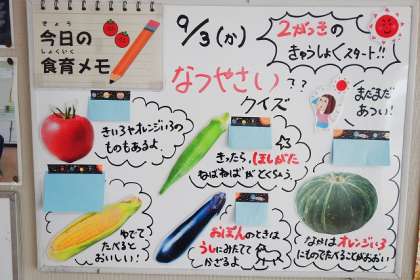 きょう
今日の
しょくいく
食育メモ
9/3(か)
2がっきの
きゅうしょくスタート!!
なつやさい
クイズ
??
まだまだ
あつい!
きいろやオレンジいろの
ものもあるよ
きったら、ほしがた
ねばねばがとくちょう。
ゆでて
たべると
おいしい!
おぼんのときは
うしにみたてて
かざるよ
なかはオレンジいろ
にものでたべることがおおい